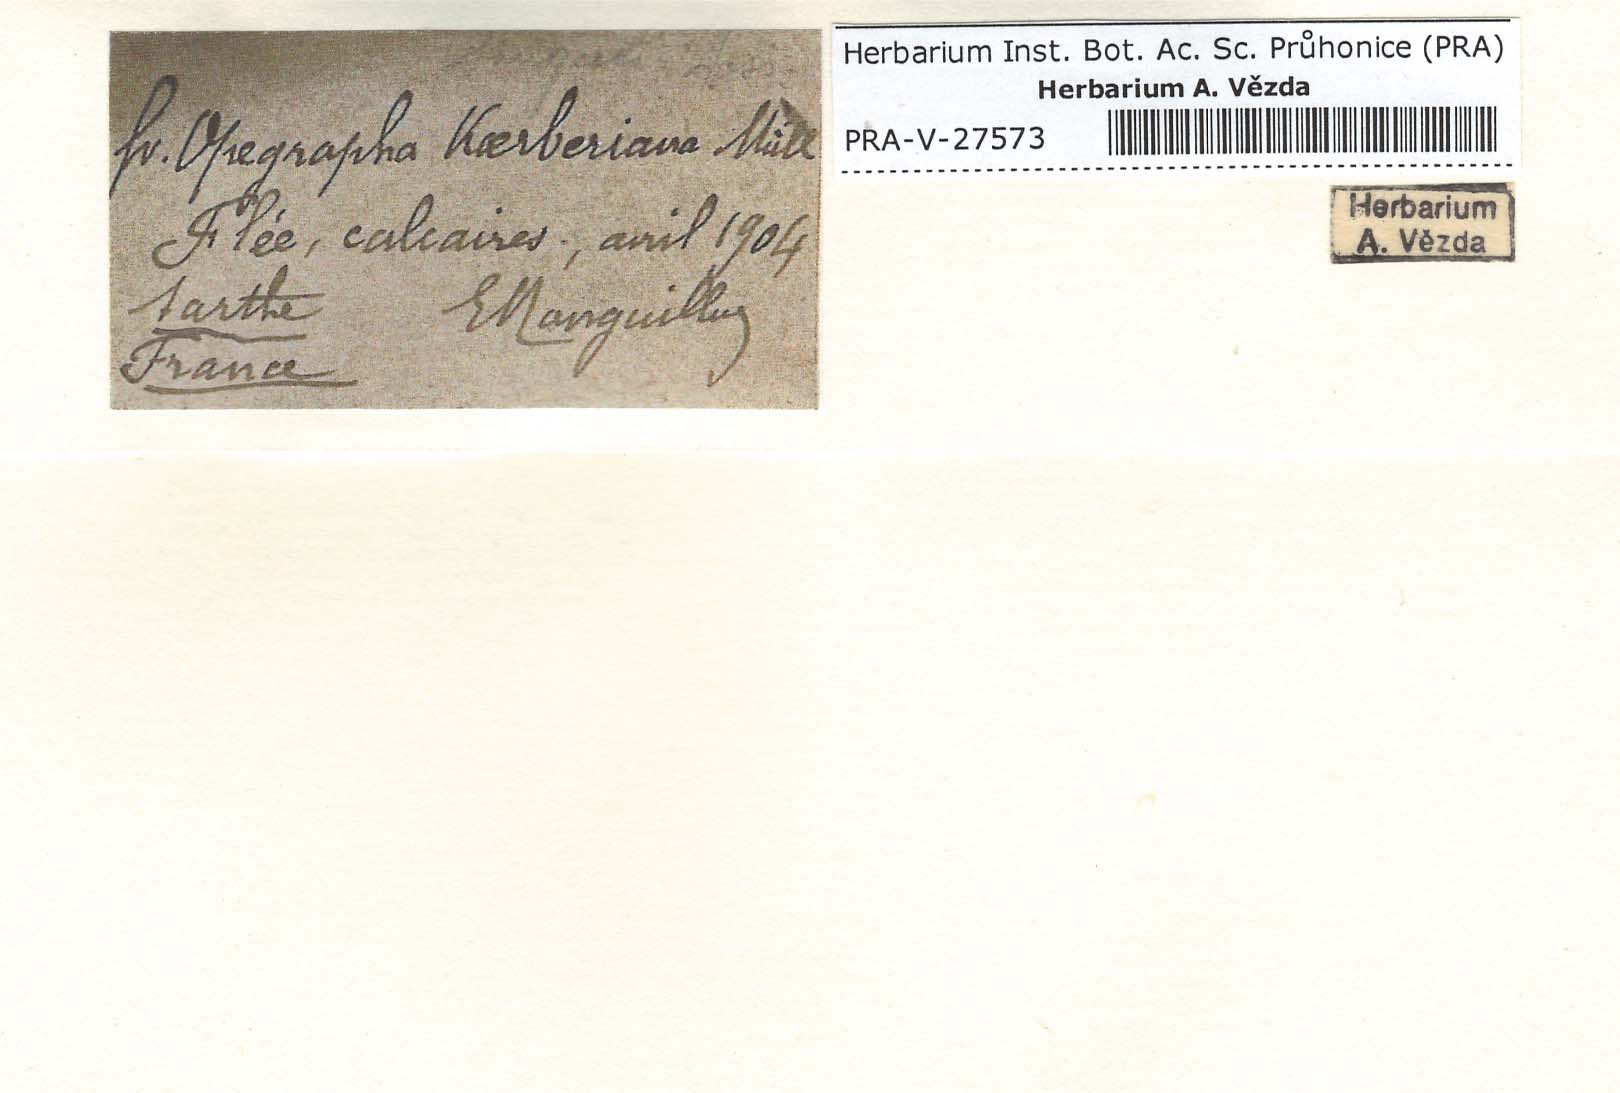 fr. Opegrapha Kœrberiana Müll
Flée, calcaires, avril 1904
Sarthe EMonguillon
France
Herbarium Inst. Bot. Ac. Sc. Průhonice (PRA)
Herbarium A. Vězda
PRA-V-27573
Herbarium
A. Vězda